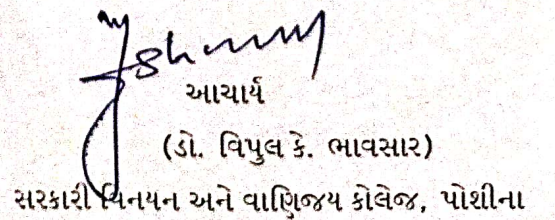 આચાર્ય
(ડો. વિપુલ કે. ભાવસાર)
સરકારી વિનયન અને વાણિજય કોલેજ, પોશીના